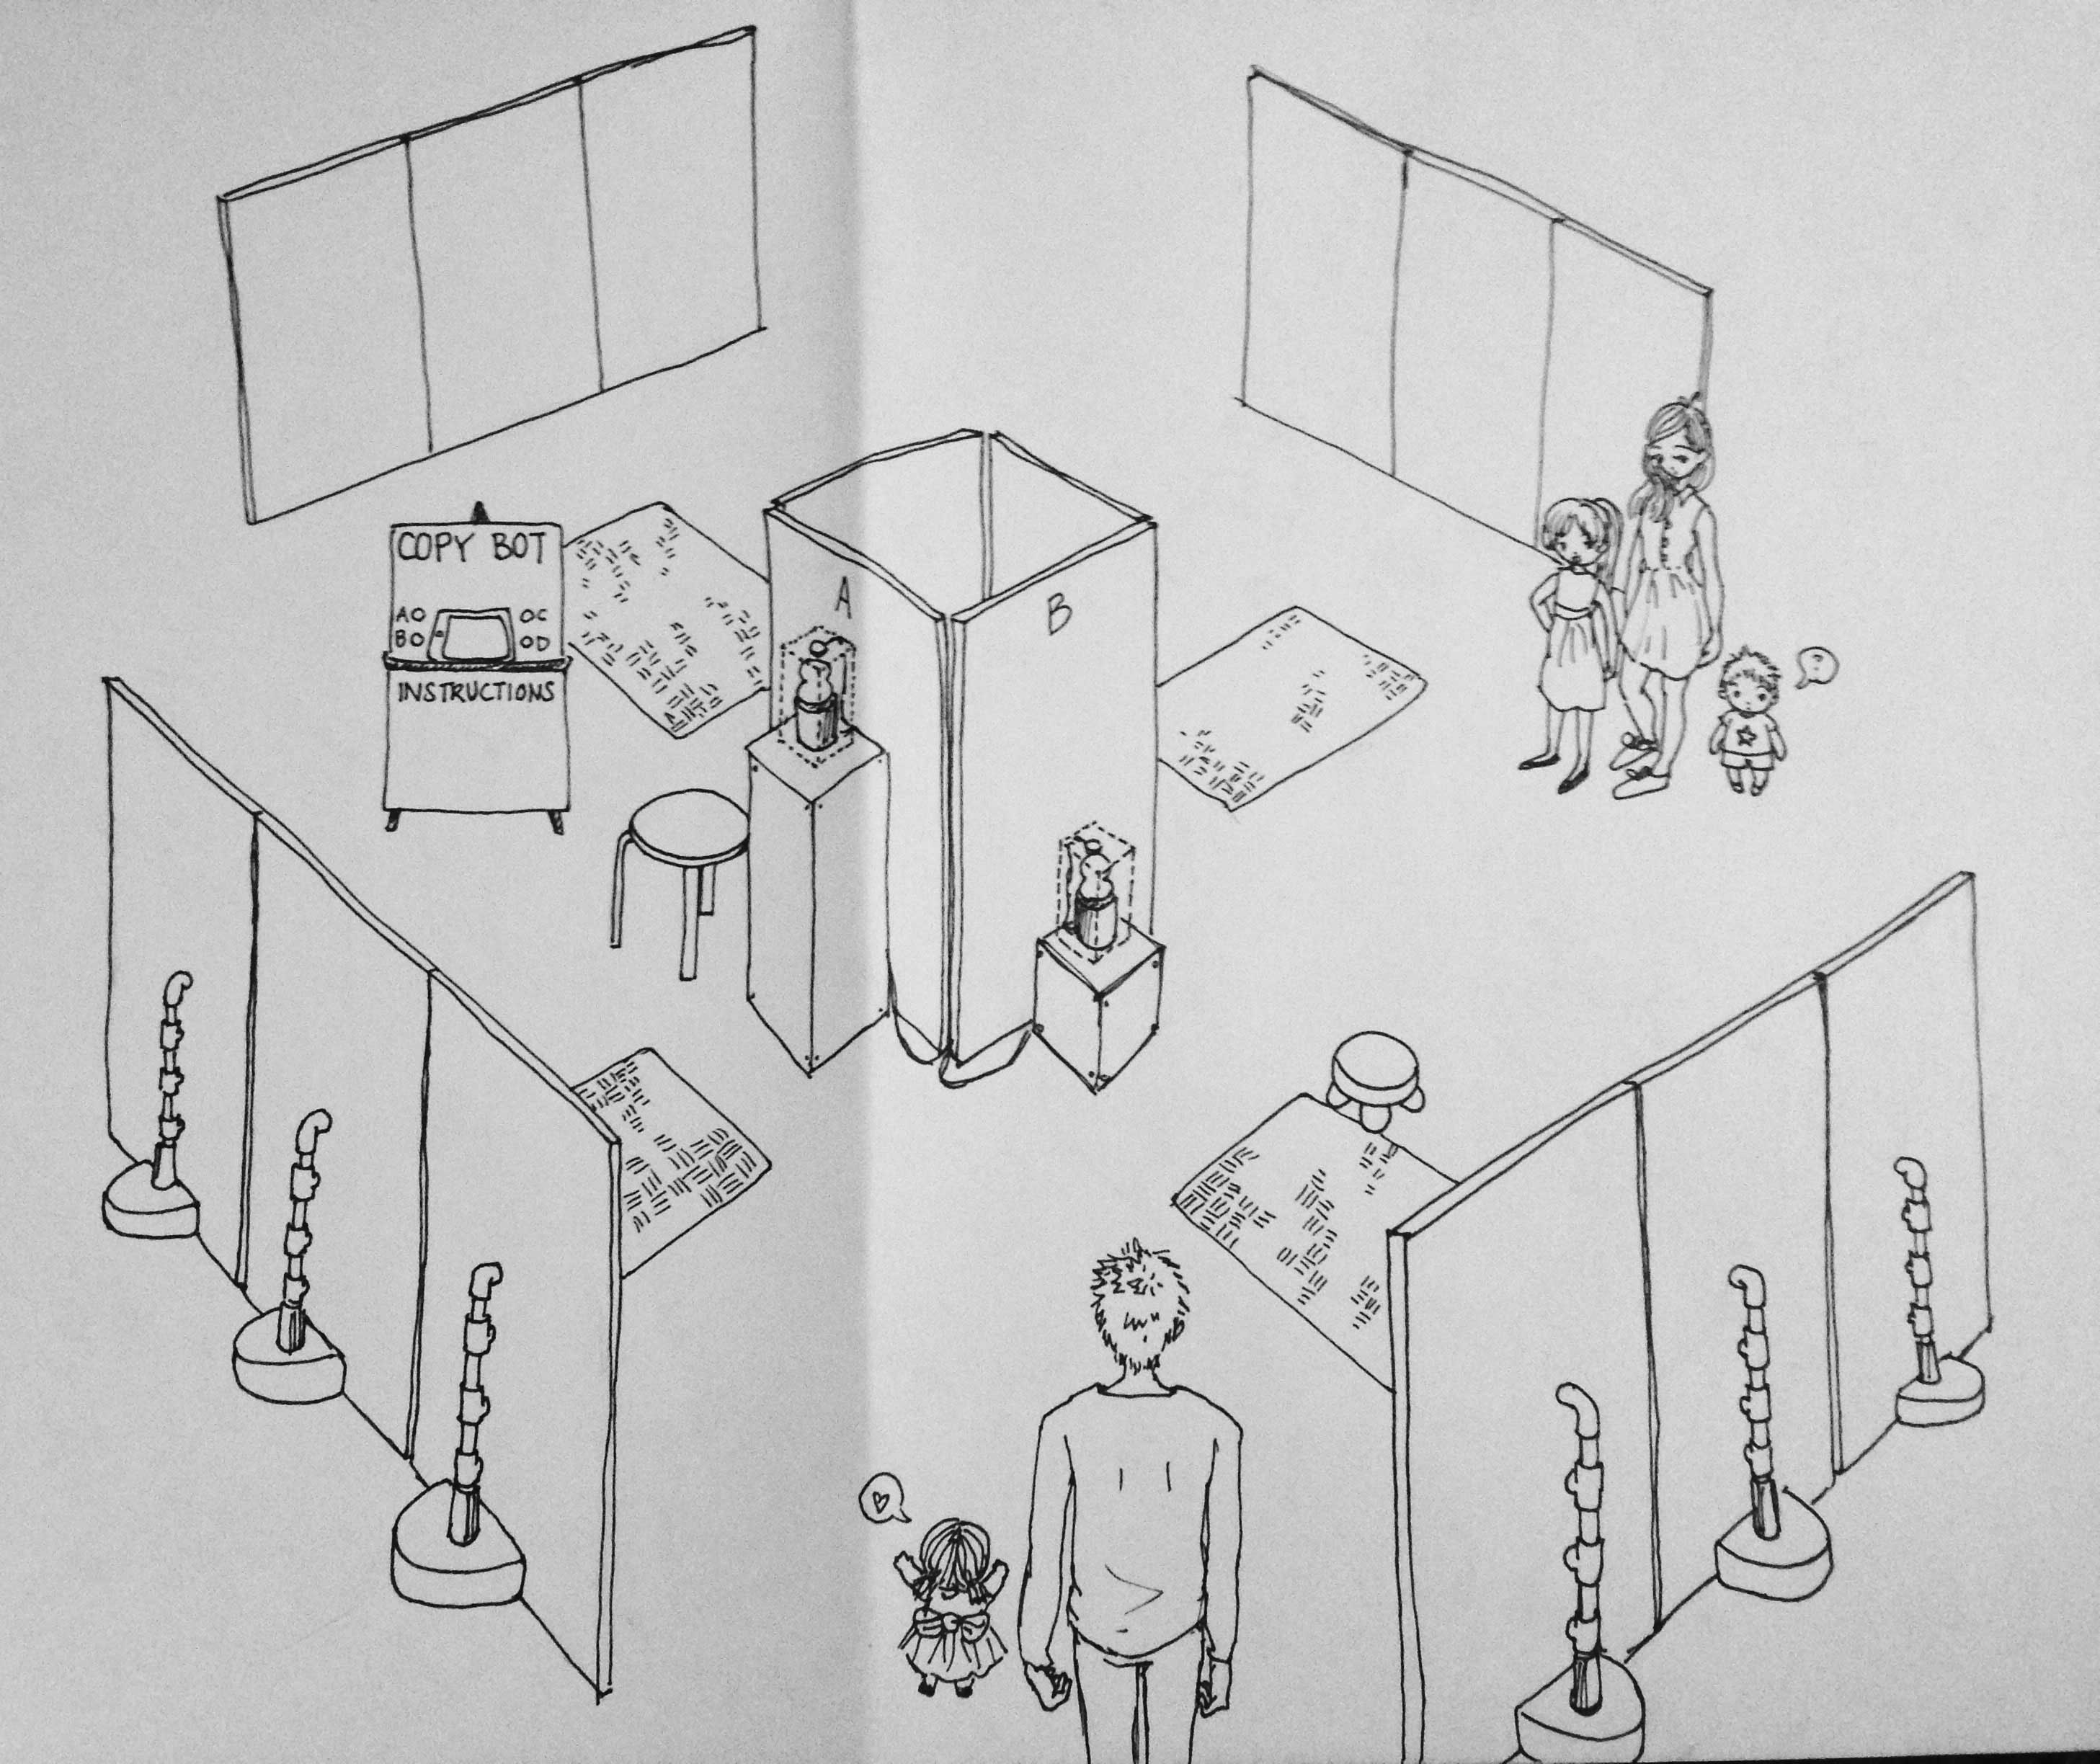 COPY BOT
A C
B D
INSTRUCTIONS
A
B
?